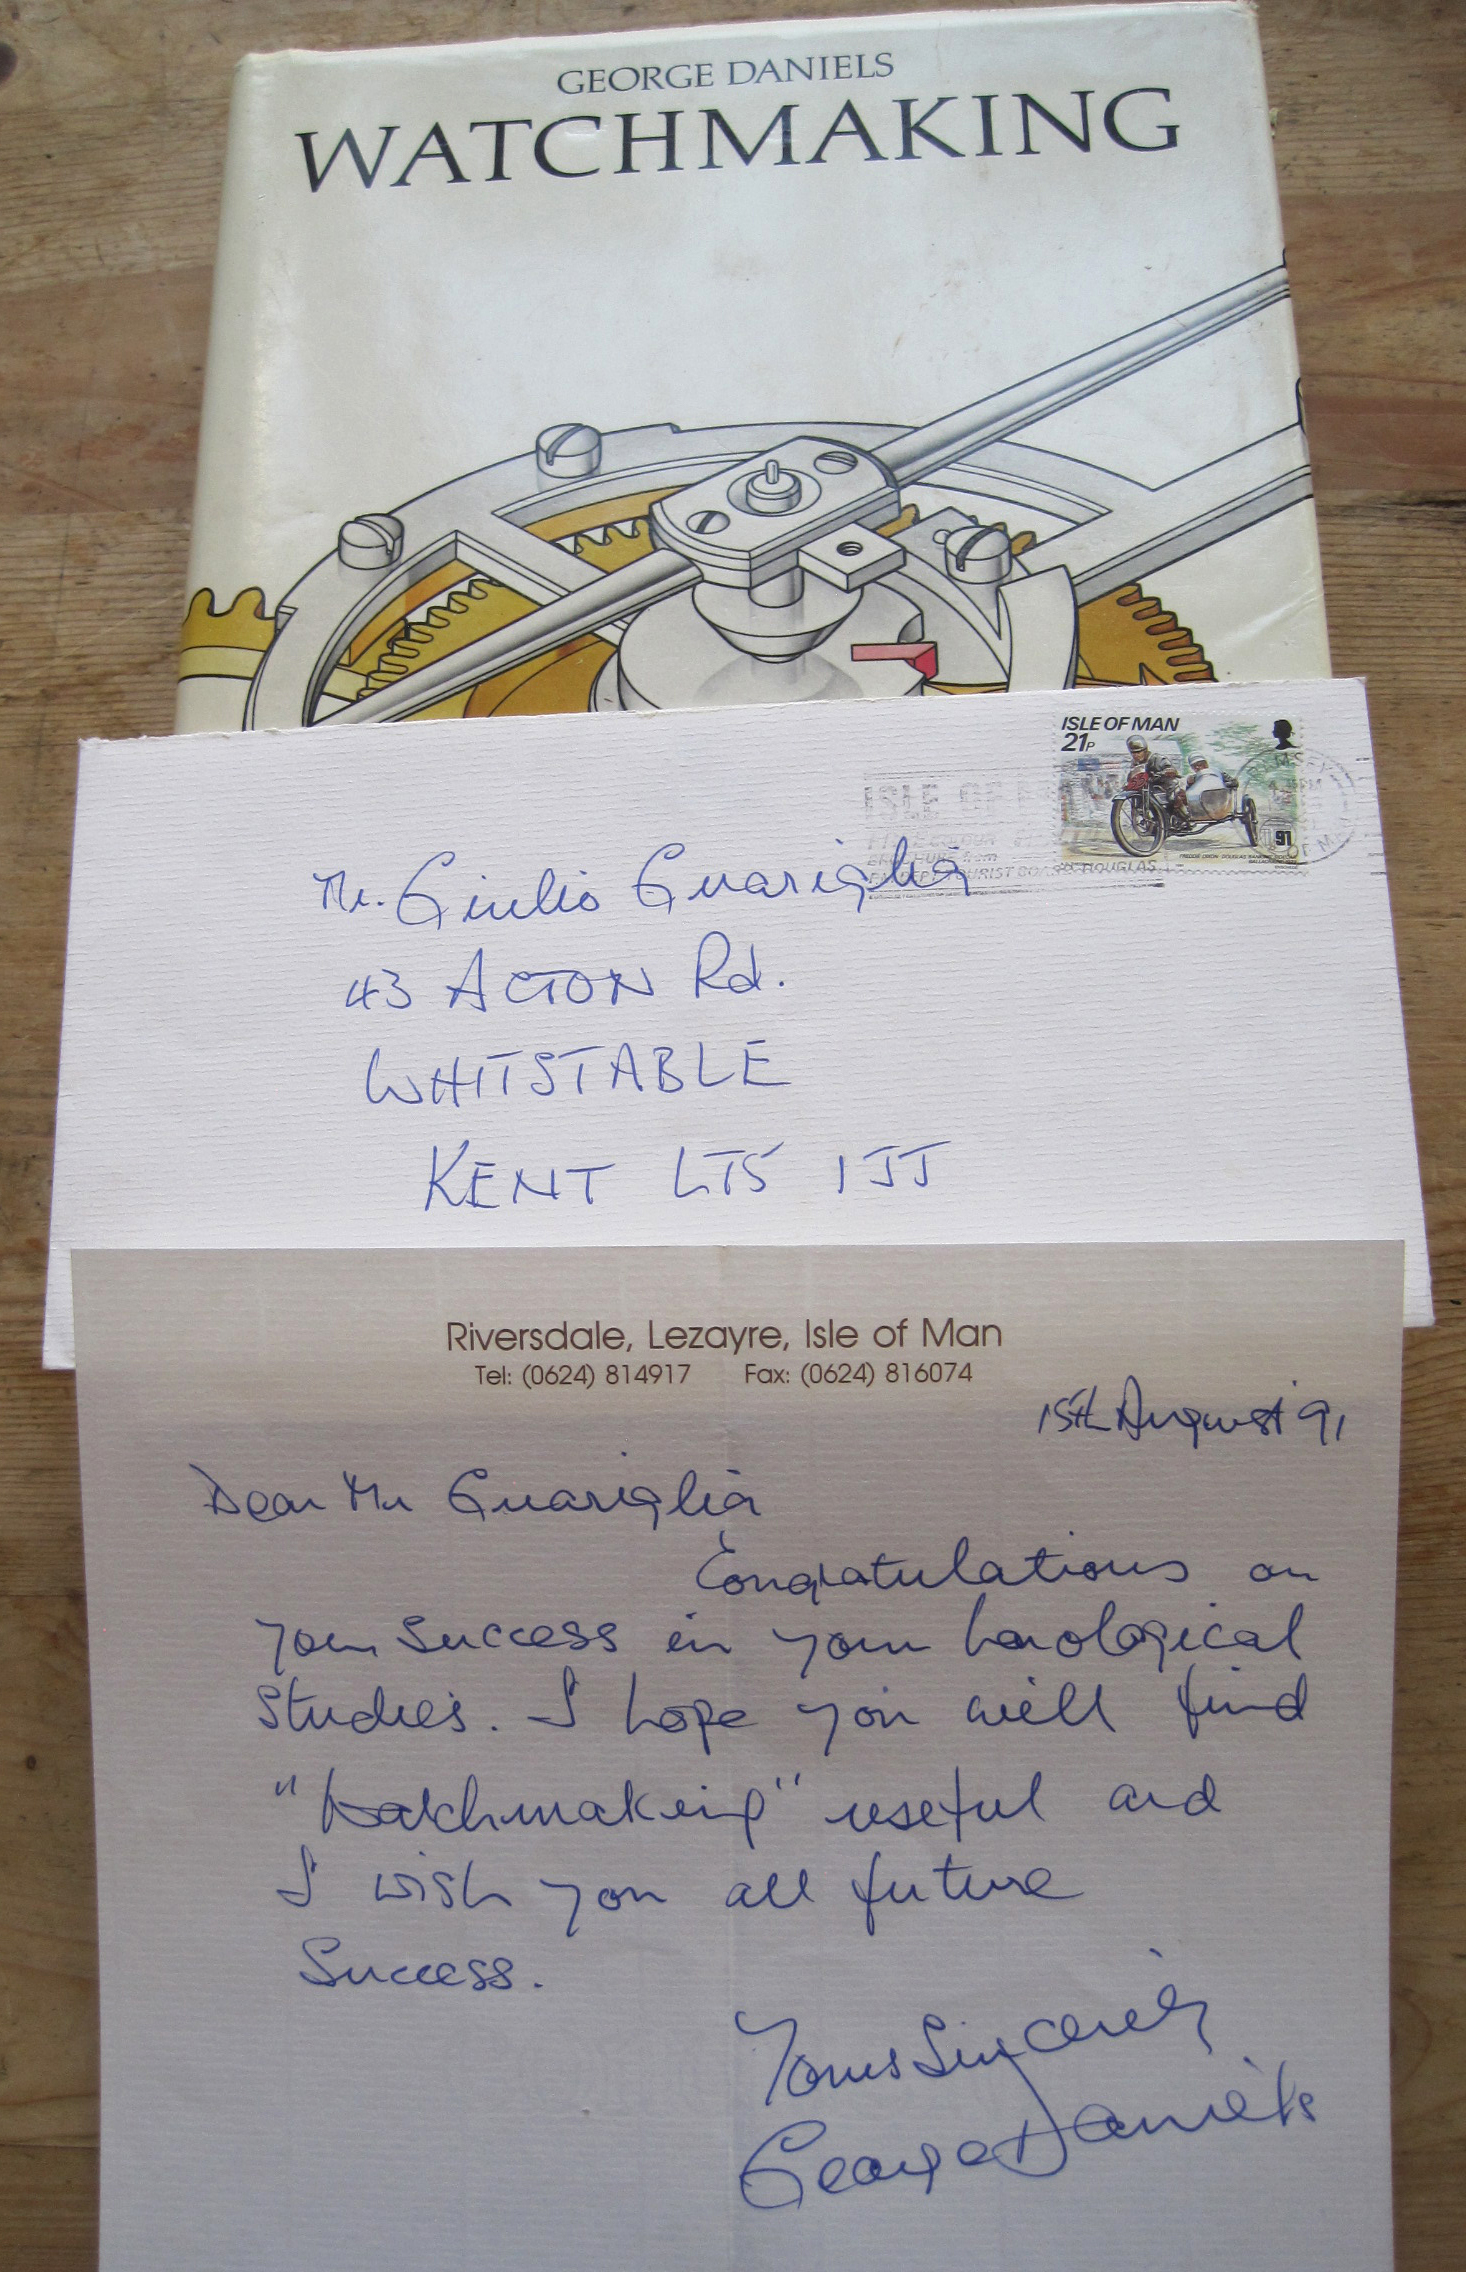 GEORGE DANIELS
WATCHMAKING
ISLE OF MAN
21P
ISLE OF
91
TOURIST BOARD DOUGLAS
Mr. Giulio Guariglia
43 ACTON Rd.
WHITSTABLE
KENT LT5 1JJ
Riversdale, Lezayre, Isle of Man
Tel: (0624) 814917 Fax: (0624) 816074
15th August 91
Dear Mr Guariglia
Congratulations on
your success in your horological
studies. I hope you will find
"Watchmaking" useful and
I wish you all future
success.
Yours Sincerely
George Daniels